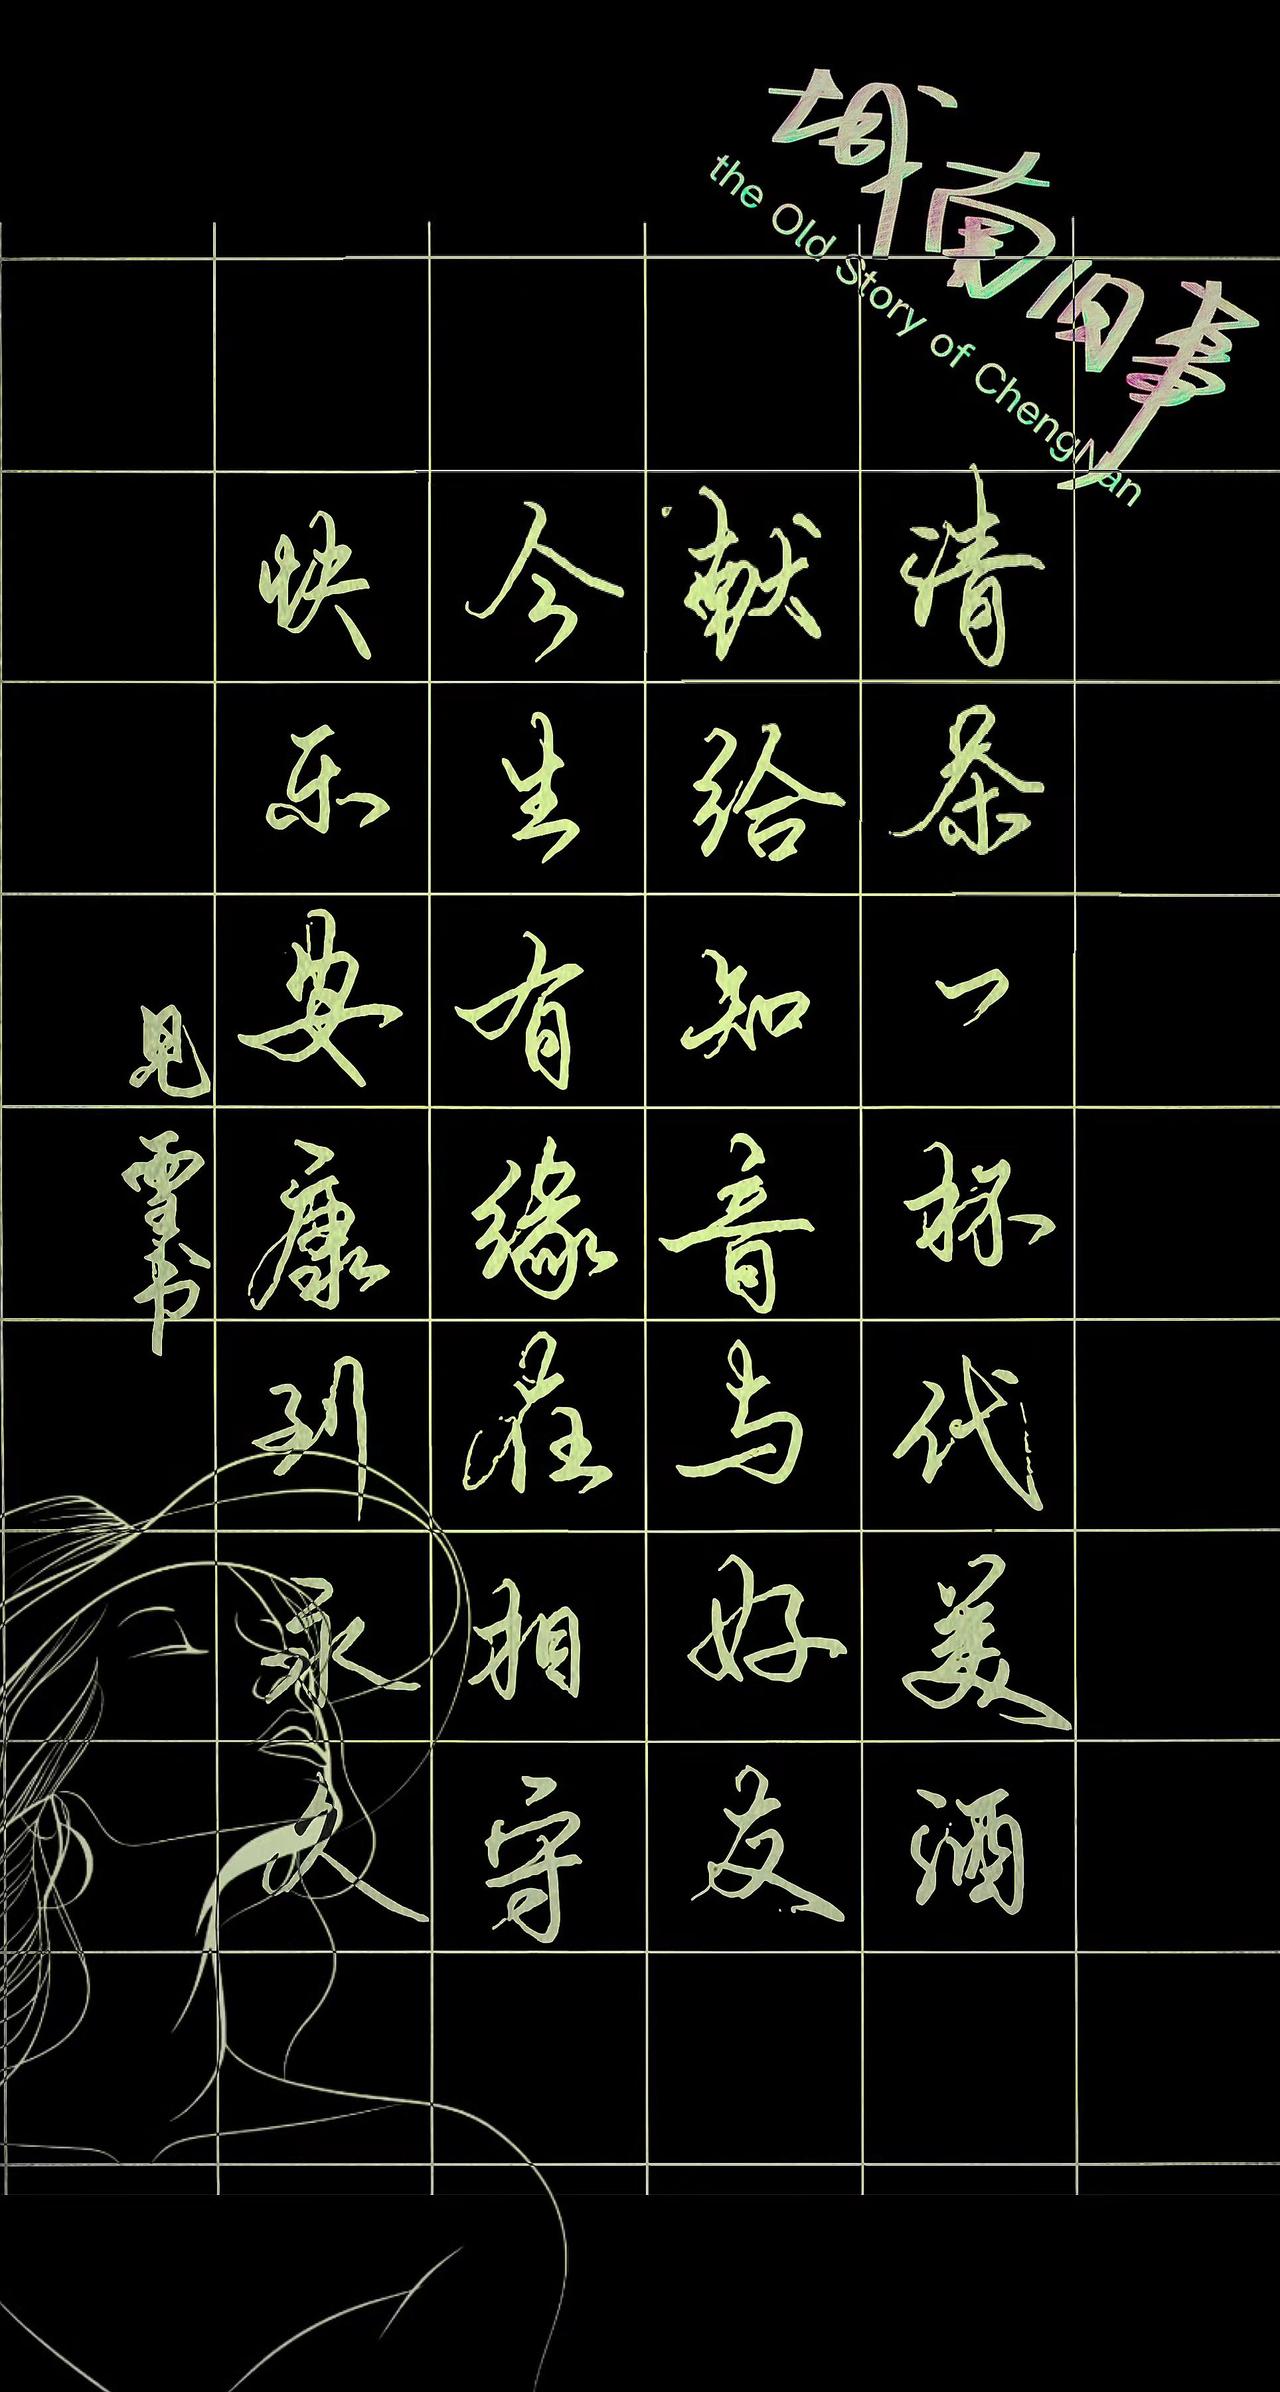 城南旧事
the Old Story of ChengNan
清茶一杯代美酒
献给知音与好友
今生有缘在相守
快乐安康到永久
見雪书